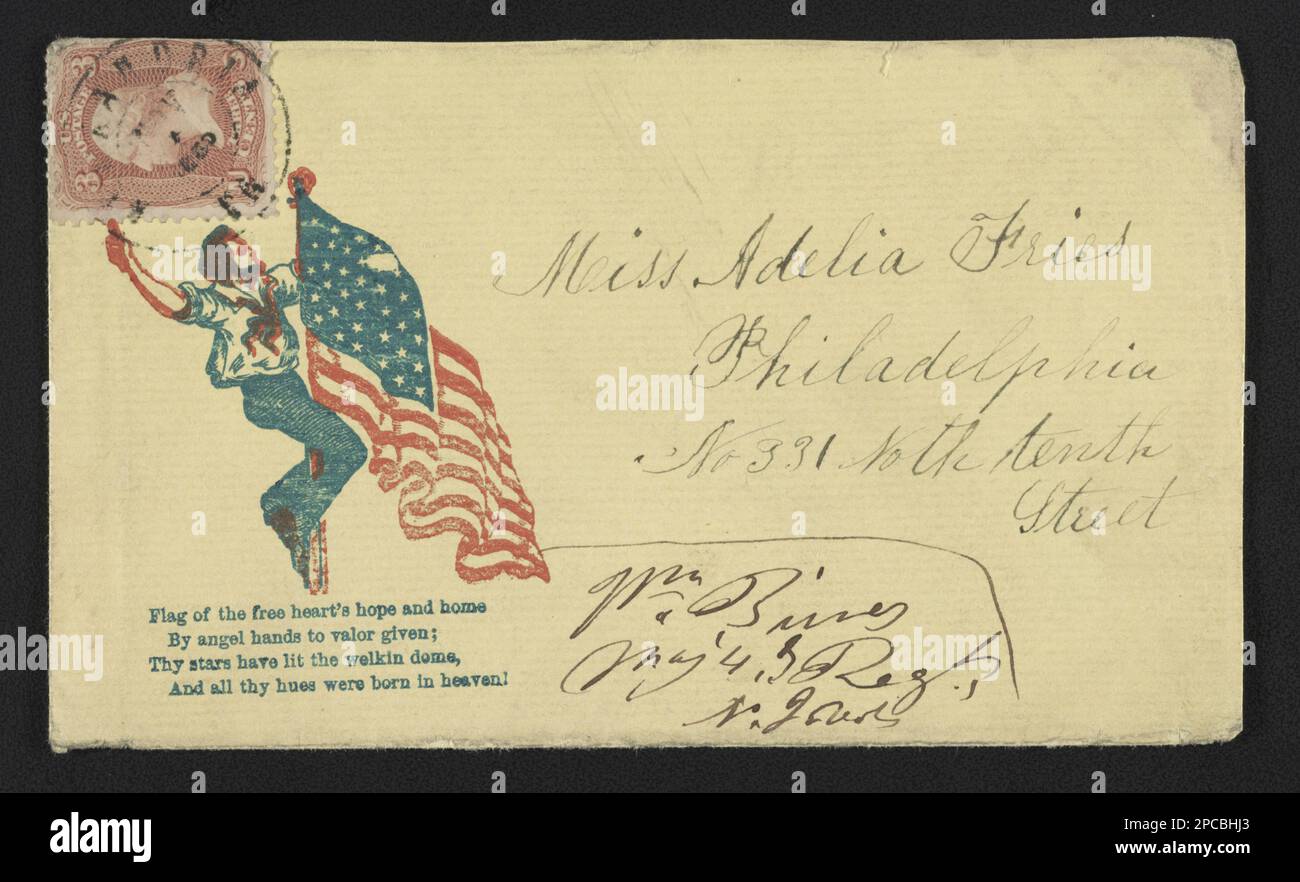 Miss Adelia Fries
Philadelphia
No 331 Noth tenth
Street
Flag of the free heart's hope and home
By angel hands to valor given;
Thy stars have lit the welkin dome,
And all thy hues were born in heaven!
Wm
Maj 4, Regt,
N. Jersey
alamy
Image ID: 2PCBHJ3
www.alamy.com